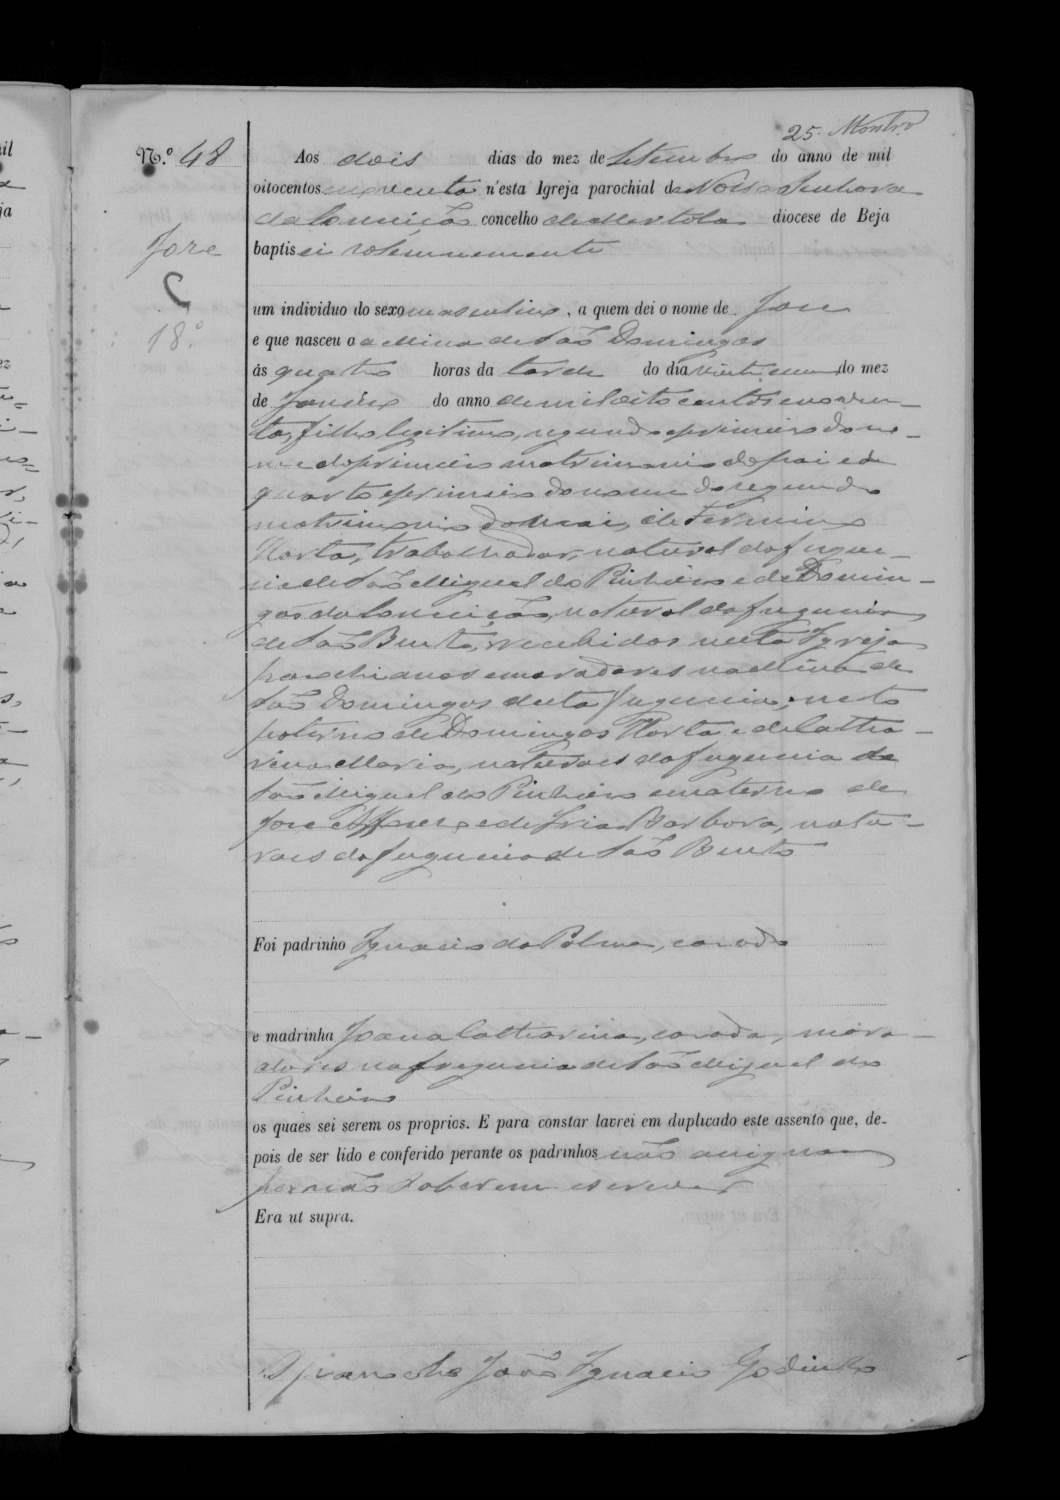 25. Montr.o
N.º 48
Aos dois dias do mez de Setembro do anno de mil
oitocentos e noventa n'esta Igreja parochial de Nossa Senhora
da Conceição concelho de Mertola diocese de Beja
José
baptisei solemnemente
C
um individuo do sexo masculino, a quem dei o nome de José
18.º
e que nasceu a a Mina de São Domingos
ás quatro horas da tarde do dia vinte e um do mez
de Janeiro do anno de mil oito centos e noven-
ta, filho legitimo, segundo e primeiro do no-
me do primeiro matrimonio do pai e de
quarto e primeiro do nome do segundo
matrimonio da mai, de Firmino
Horta, trabalhador, natural da fregue-
sia de São Miguel do Pinheiro e de Domin-
gas da Conceição, natural da freguesia
de São Bento, recebidos nesta Igreja
parochianos e moradores na Mina de
São Domingos desta freguesia, neto
paterno de Domingos Horta e de Catha-
rina Maria, naturaes da freguesia de
São Miguel do Pinheiro e materno de
José e de Barbora, natu-
raes da freguesia de São Bento
Foi padrinho Ignacio da Palma, casado
e madrinha Joana Catharina, casada, mora-
dores na freguesia de São Miguel do
Pinheiro
os quaes sei serem os proprios. E para constar lavrei em duplicado este assento que, de-
pois de ser lido e conferido perante os padrinhos não assignam
por não saberem escrever
Era ut supra.
João Ignacio Godinho